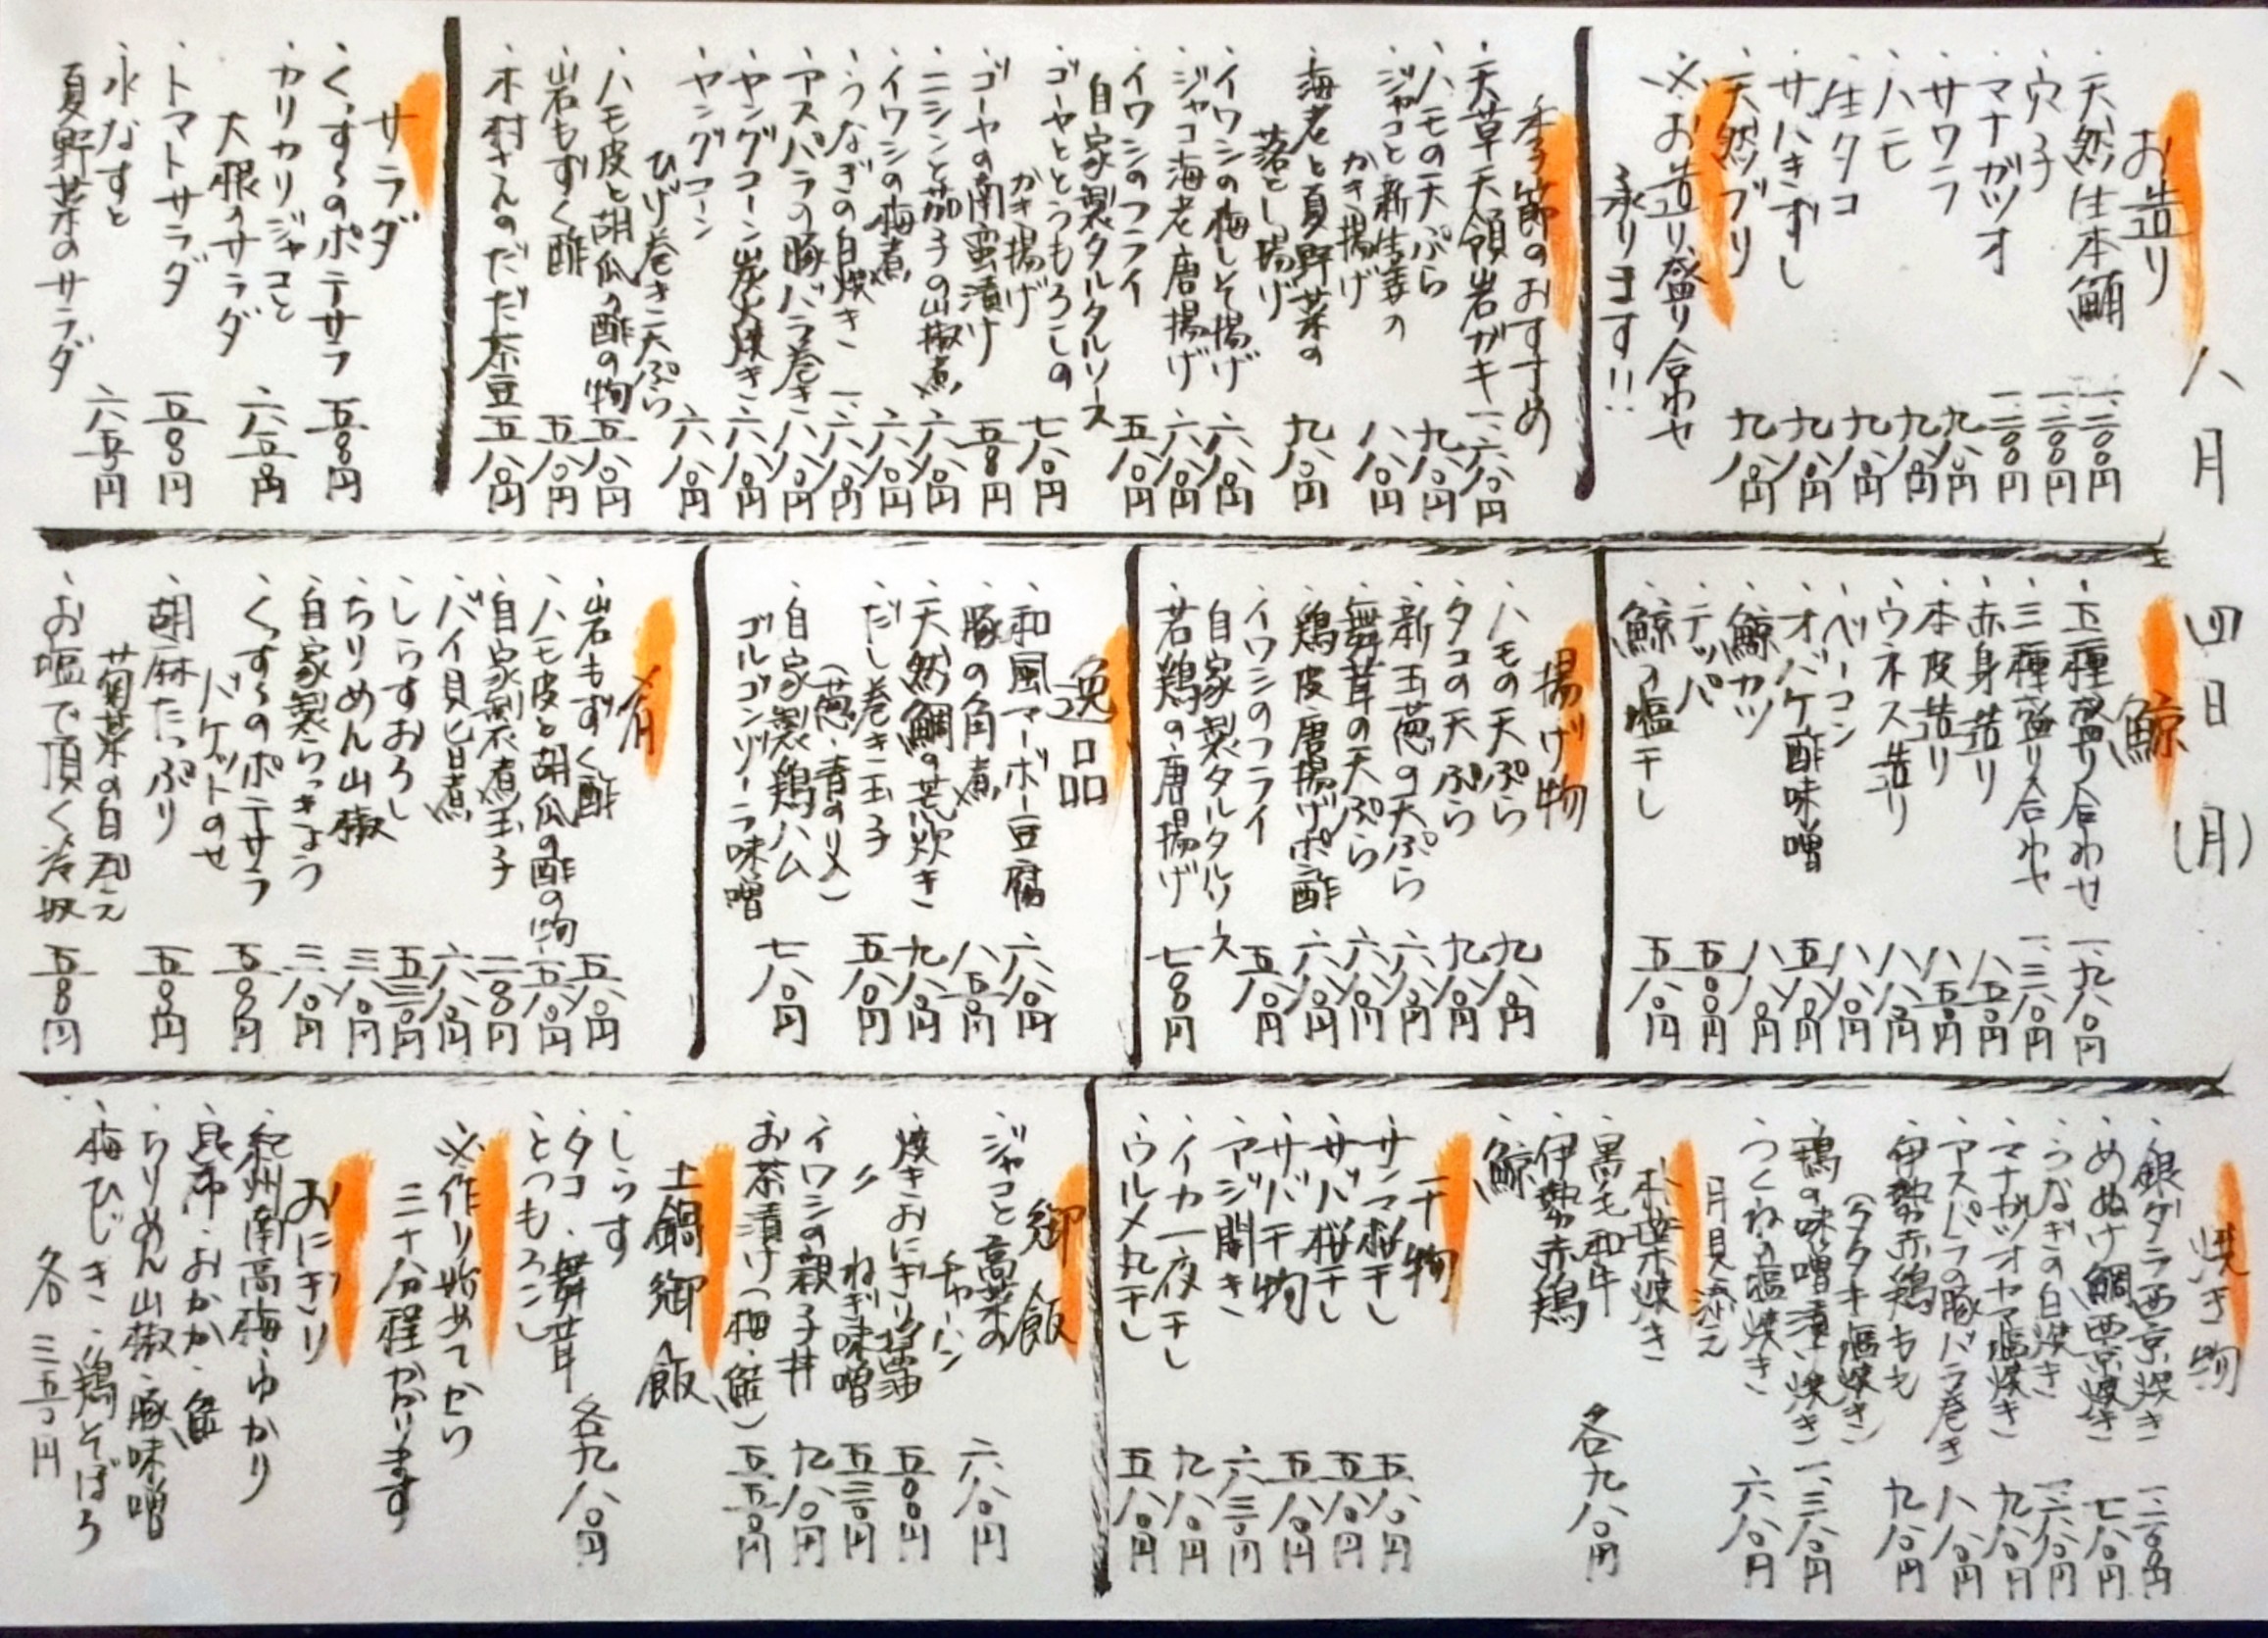 八月四日(月)
お造り
・天然生本鮪 一、二〇〇円
・穴子 一、二〇〇円
・マナガツオ 一、二〇〇円
・サワラ 九八〇円
・ハモ 九八〇円
・生タコ 九八〇円
・サバきずし 九八〇円
・天然ブリ 九八〇円
※お造り盛り合わせ
承ります!!
季節のおすすめ
・天草天領岩ガキ 一、六八〇円
・ハモの天ぷら 九八〇円
・ジャコと新生姜の
かき揚げ 八八〇円
・海老と夏野菜の
落とし揚げ 九八〇円
・イワシの梅しそ揚げ 六八〇円
・ジャコ海老唐揚げ 六八〇円
・イワシのフライ
自家製タルタルソース 五八〇円
・ゴーヤととうもろこしの
かき揚げ 七八〇円
・ゴーヤの南蛮漬け 五〇〇円
・ニシンと茄子の山椒煮 六八〇円
・イワシの梅煮 六八〇円
・うなぎの白焼き 一、六八〇円
・アスパラの豚バラ巻き 八八〇円
・ヤングコーン炭火焼き 六八〇円
・ヤングコーン
ひげ巻き天ぷら 六八〇円
・ハモ皮と胡瓜の酢の物 五八〇円
・岩もずく酢 五八〇円
・木村さんのだだ茶豆 五八〇円
サラダ
・くっすのポテサラ 五〇〇円
・カリカリジャコと
大根のサラダ 六五〇円
・トマトサラダ 五〇〇円
・水なすと
夏野菜のサラダ 六八〇円
鯨
・五種盛り合わせ 一、九八〇円
・三種盛り合わせ 一、三八〇円
・赤身造り 八五〇円
・本皮造り 八五〇円
・ウネス造り 八八〇円
・ベーコン 八八〇円
・オバケ酢味噌 五八〇円
・鯨カツ 八八〇円
・テッパ 五〇〇円
・鯨の塩干し 五八〇円
揚げ物
・ハモの天ぷら 九八〇円
・タコの天ぷら 九八〇円
・新玉葱の天ぷら 六八〇円
・舞茸の天ぷら 六八〇円
・鶏皮唐揚げポン酢 六八〇円
・イワシのフライ
自家製タルタルソース 五八〇円
・若鶏の唐揚げ 七〇〇円
逸品
・和風マーボー豆腐 六八〇円
・豚の角煮 八五〇円
・天然鯛の荒炊き 九八〇円
・だし巻き玉子
(葱・青のり〆) 五八〇円
・自家製鶏ハム
ゴルゴンゾーラ味噌 七八〇円
肴
・岩もずく酢 五八〇円
・ハモ皮と胡瓜の酢の物 五八〇円
・自家製煮玉子 二〇〇円
・バイ貝旨煮 六八〇円
・しらすおろし 五三〇円
・ちりめん山椒 三八〇円
・自家製らっきょう 三八〇円
・くっすのポテサラ
バケットのせ 五〇〇円
・胡麻たっぷり
菊菜の白和え 五〇〇円
・お塩で頂く冷奴 五〇〇円
焼き物
・銀ダラ西京焼き 一、二〇〇円
・めぬけ鯛西京焼き 七八〇円
・うなぎの白焼き 一、六八〇円
・マナガツオヤマ塩焼き 九八〇円
・アスパラの豚バラ巻き 八八〇円
・伊勢赤鶏もも
(タタキ・塩焼き) 九八〇円
・鶏の味噌漬け焼き 一、三八〇円
・つくねの塩焼き
月見添え 六八〇円
朴葉焼き
・黒毛和牛
・伊勢赤鶏
・鯨 各九八〇円
干物
・サンマ桜干し 五八〇円
・サバ桜干し 五八〇円
・サバ干物 五八〇円
・アジ開き 六三〇円
・イカ一夜干し 九八〇円
・ウルメ丸干し 五八〇円
御飯
・ジャコと高菜の
チャーハン 六八〇円
・焼きおにぎり醤油 五〇〇円
・〃 ねぎ味噌 五三〇円
・イワシの親子丼 九八〇円
・お茶漬け(梅・鮭) 五五〇円
土鍋御飯
・しらす
・タコ・舞茸
・とうもろこし 各九八〇円
※作り始めてから
三十分程かかります
おにぎり
・紀州南高梅・ゆかり
・昆布・おかか・鮭
・ちりめん山椒・豚味噌
・梅ひじき・鶏そぼろ
各三五〇円